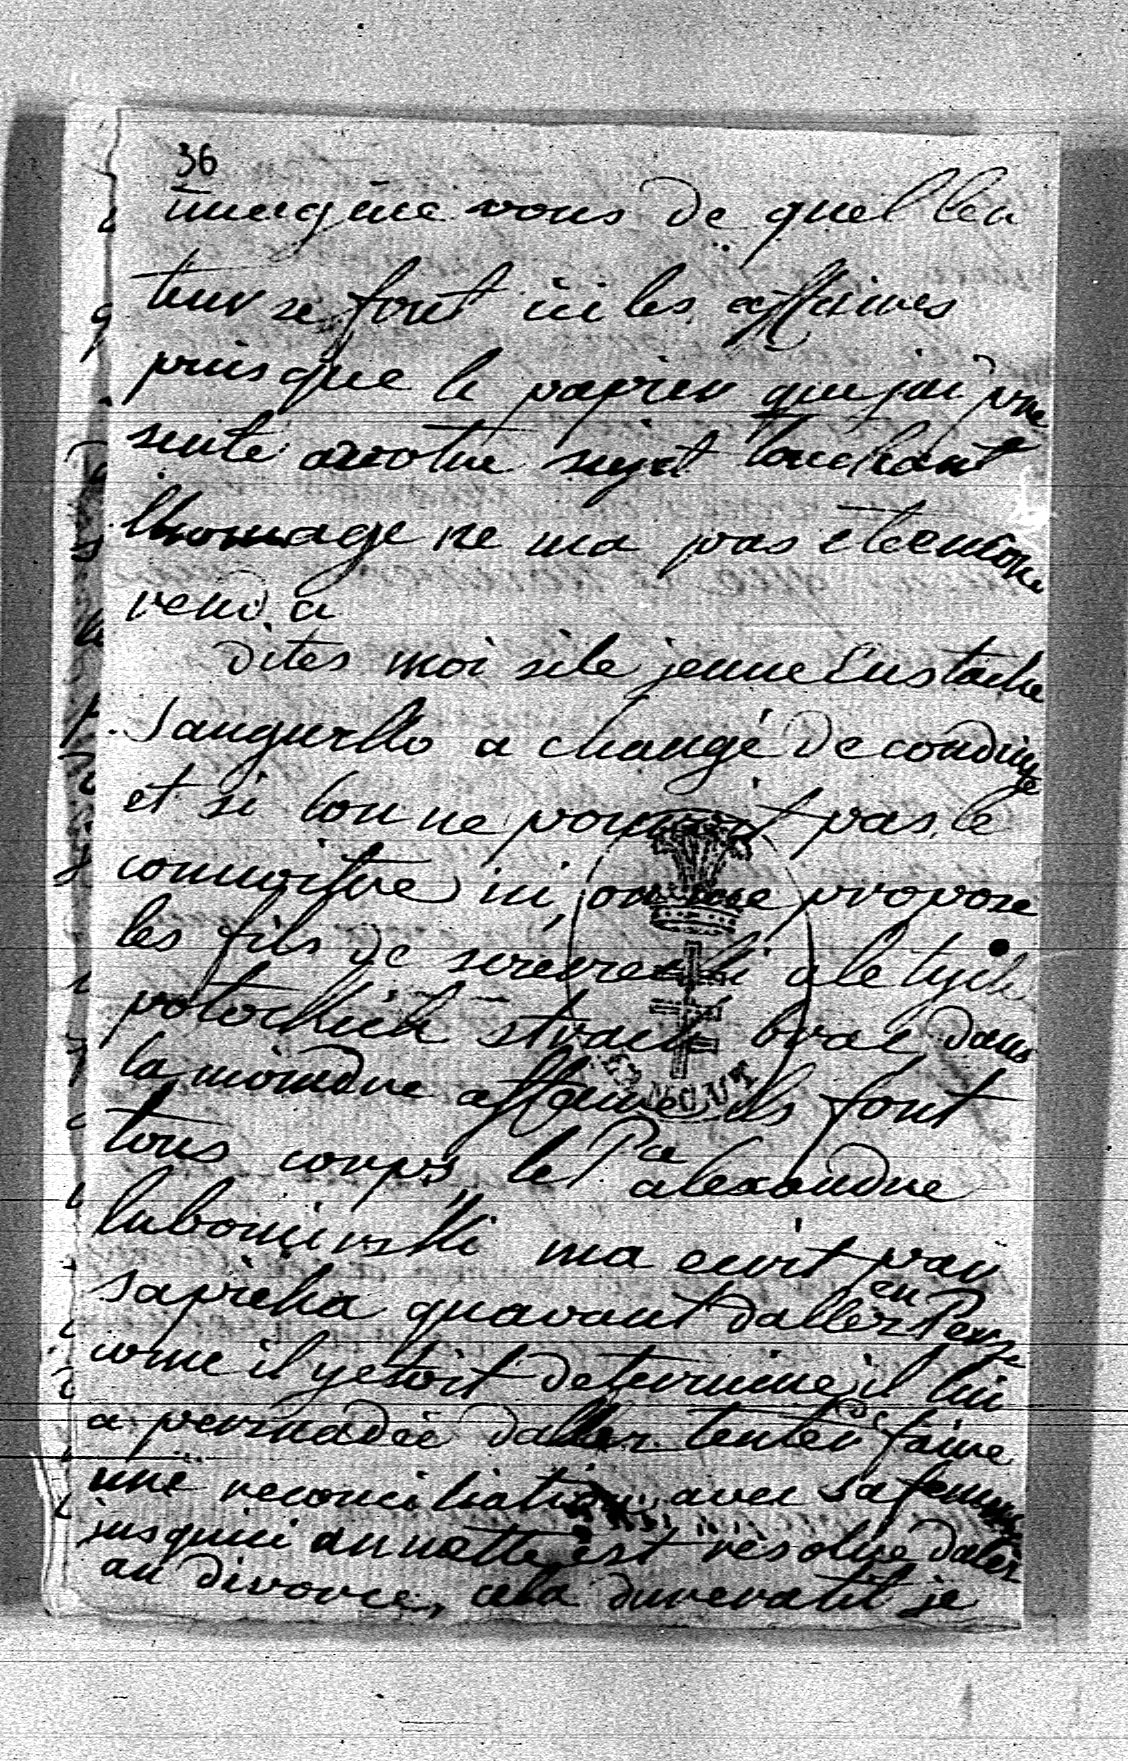 36
imagine vous de quel len
teur se font ici les affaires
puis que le papier que jai pre
senté avotre sujet touchant
lhomage ne ma pas etéencore
rend a
dites moi sile jeune Eustache
Sangusko a changé de conduite
et si lon ne pourroit pas le
connoitre ici, on me propose
les fils de
dans
la moindre affaire ils font
tous corps, le Pce alexandre
lubomirski ma ecrit par
sapieha quavant daller en Perse
come il y etoit determiné, il lui
a persuadée daller tenter de faire
une reconciliation avec sa femme
jusquici annette est résolue daler
au divorce, cela dureratil je